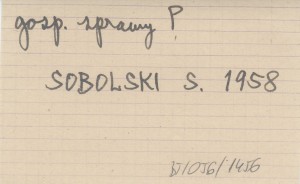 gosp. sprawy P
SOBOLSKI S. 1958
1456